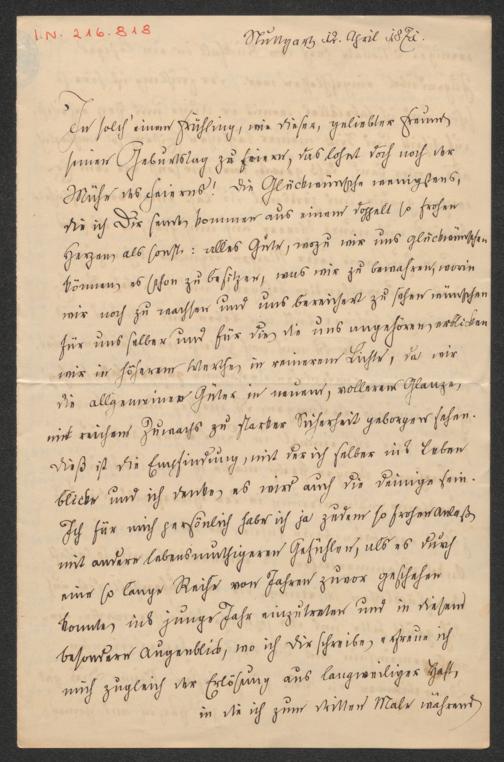 I.N. 216.818
Stuttgart 12. April 1871.
In solch' einem Frühling, wie dieser, geliebter Freund,
seinen Geburtstag zu feiern, das lohnt doch noch der
Mühe des Feierns! Die Glückwünsche wenigstens,
die ich Dir sende, kommen aus einem doppelt so frohen
Herzen, als sonst: alles Gute, wozu wir uns glückwünschen
können, es schon zu besitzen, was wir zu bewahren, worin
wir noch zu wachsen und uns bereichert zu sehen wünschen
für uns selber und für die, die uns angehören, erblicken
wir in höherem Werthe, in reinerem Lichte, da wir
die allgemeinen Güter in neuem, vollerem Glanze,
mit reichem Zuwachs zu starker Sicherheit geborgen sehen.
Dieß ist die Empfindung, mit der ich selber ins Leben
blicke und ich denke, es wird auch die deinige sein.
Ich für mich persönlich habe ich ja zudem so frohen Anlaß
mit andern lebensmuthigeren Gefühlen, als es durch
eine so lange Reihe von Jahren zuvor geschehen
konnte, ins junge Jahr einzutreten und in diesem
besondern Augenblick, wo ich Dir schreibe, erfreue ich
mich zugleich der Erlösung aus langweiliger Haft,
in die ich zum dritten Male während